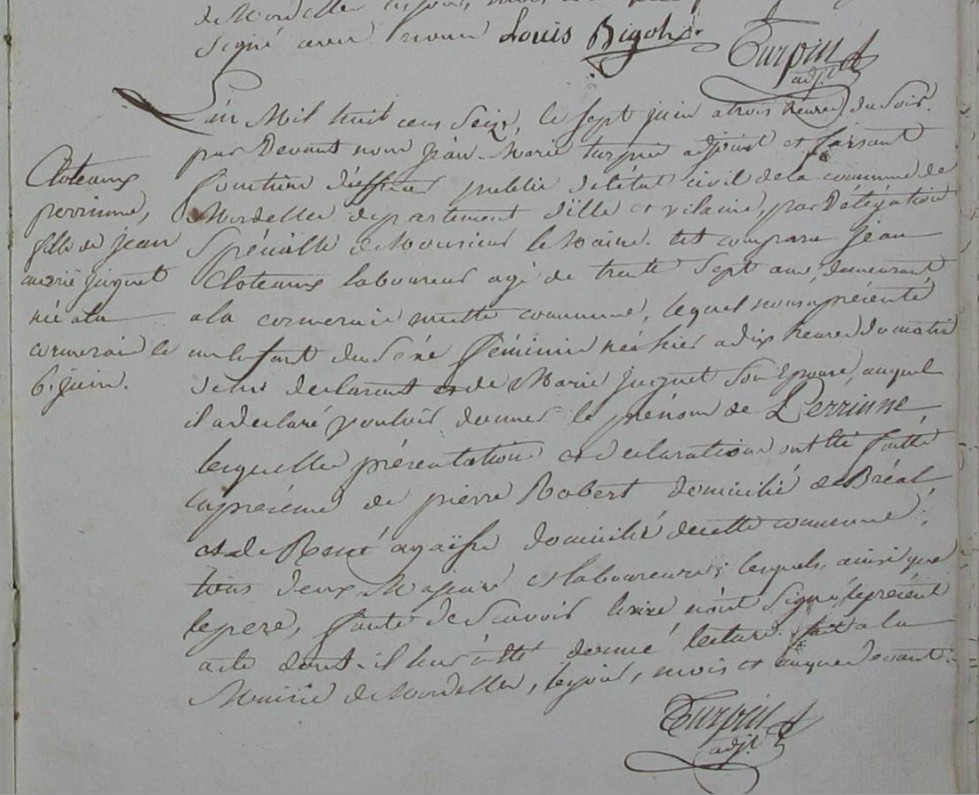 de Mordelles les jour, mois et
signé avec nous Louis Bigot
Turpin
adj.t
L'an Mil huit cens Seize, le sept juin a trois heures du Soir.
par Devant nous jean Marie turpin adjoint et faisant
fonction d'officier public de letat civil de la commune de
Mordelles departement d'ille et vilaine, par Délégation
Spéciálle de Monsieur le Maire. Est comparu jean
Cloteaux laboureur agé de trente Sept ans, demeurant
a la cormerais en cette commune, lequel nous a présenté
un enfant du Séxe féminin né hier a dix heures du matin
de lui declarant et de Marie juguet Son Epouse, auquel
il a declaré vouloir donner le prénom de Perrinne,
lesquelles présentation et declaration ont été faitte
en présence de pierre Robert domicilié de Bréal
et de René agaisse domicilié de cette commune,
tous deux Majeurs et laboureurs; lesquels, ainsi que
le pere, faute de Savoir ecrire n'ont Signé, le présent
acte dont il leur a été donné lecture. fait a la
Mairie de Mordelles, les jour, mois et an que devant
Turpin
adj.t
Cloteaux
perrinne,
fille de jean
marie juguet
née a la
cormerais le
6. juin.